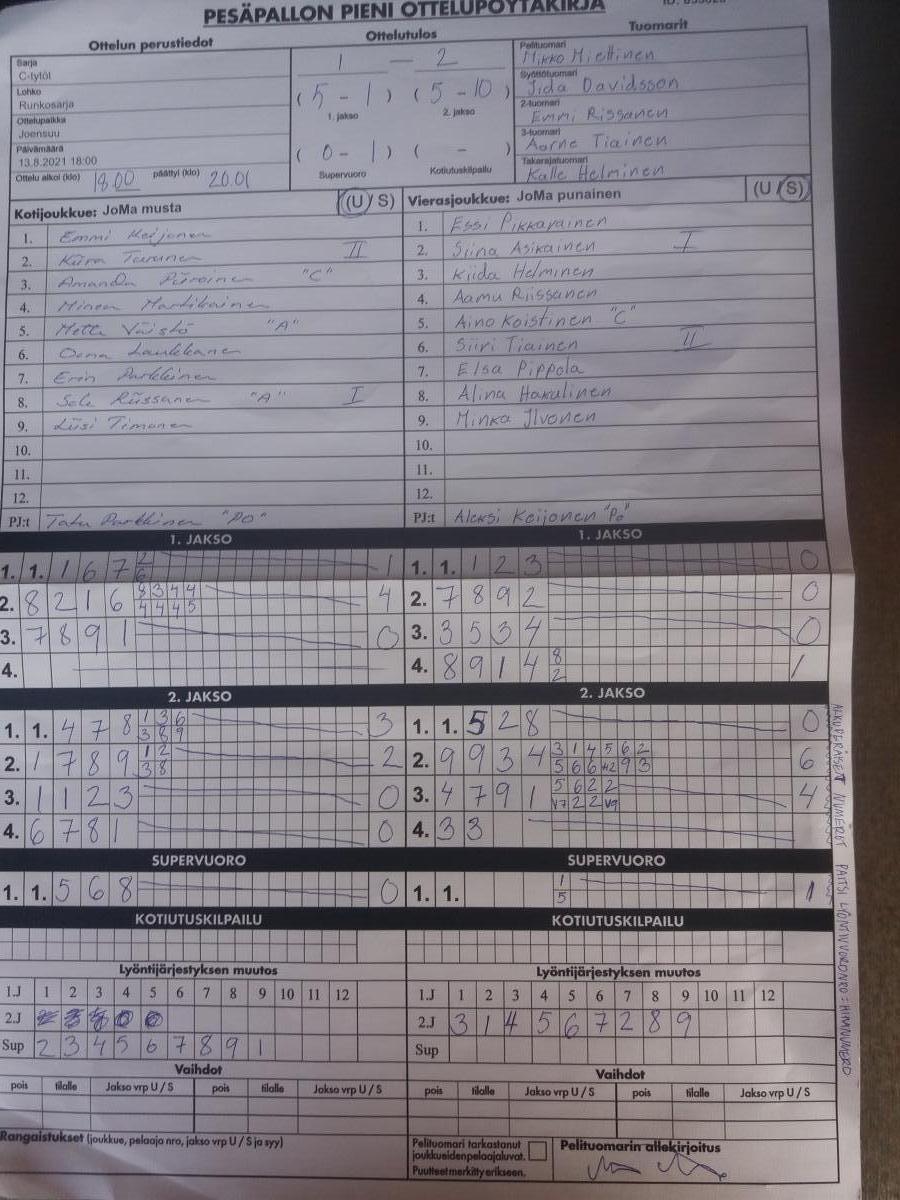 PESÄPALLON PIENI OTTELUPÖYTÄKIRJA
Ottelun perustiedot
Sarja
C-tytöt
Lohko
Runkosarja
Ottelupaikka
Joensuu
Päivämäärä
13.8.2021 18:00
Ottelu alkoi (klo) 18.00 päättyi (klo) 20.01
Ottelutulos
1 – 2
(5 - 1) (5 - 10)
1. jakso 2. jakso
(0 - 1) ( - )
Supervuoro Kotiutuskilpailu
Tuomarit
Pelituomari
Mikko Miettinen
Syöttötuomari
Iida Davidsson
2-tuomari
Emmi Rissanen
3-tuomari
Aarne Tiainen
Takarajatuomari
Kalle Helminen
Kotijoukkue: JoMa musta (U/S)
1. Emmi Keijonen
2. Kiira Turunen II
3. Amanda Piiroinen "C"
4. Minea Martikainen
5. Metta Väistö "A"
6. Oona Laukkanen
7. Erin Parkkinen
8. Sole Riissanen "A" I
9. Liisi Timonen
10.
11.
12.
PJ:t Tatu Parkkinen "PO"
Vierasjoukkue: JoMa punainen (U/S)
1. Essi Pikkarainen
2. Siina Asikainen I
3. Kiida Helminen
4. Aamu Riissanen
5. Aino Koistinen "C"
6. Siiri Tiainen II
7. Elsa Pippola
8. Alina Hakulinen
9. Minka Ilvonen
10.
11.
12.
PJ:t Aleksi Keijonen "Po"
1. JAKSO
1. 1. 1 6 7 2 6 1
2. 8 2 1 6 8 3 4 4 4 4 4 5 4
3. 7 8 9 1 0
4.
1. JAKSO
1. 1. 1 2 3 0
2. 7 8 9 2 0
3. 3 5 3 4 0
4. 8 9 1 4 8 2 1
2. JAKSO
1. 1. 4 7 8 1 3 6 3 8 9 3
2. 1 7 8 9 1 2 3 8 2
3. 1 1 2 3 0
4. 6 7 8 1 0
2. JAKSO
1. 1. 5 2 8 0
2. 9 9 3 4 3 1 4 5 6 2 5 6 6 H2 9 3 6
3. 4 7 9 1 5 6 2 2 V7 2 2 V9 4
4. 3 3
SUPERVUORO
1. 1. 5 6 8 0
SUPERVUORO
1. 1. 1 5 1
KOTIUTUSKILPAILU
KOTIUTUSKILPAILU
Lyöntijärjestyksen muutos
1.J 1 2 3 4 5 6 7 8 9 10 11 12
2.J
Sup 2 3 4 5 6 7 8 9 1
Lyöntijärjestyksen muutos
1.J 1 2 3 4 5 6 7 8 9 10 11 12
2.J 3 1 4 5 6 7 2 8 9
Sup
Vaihdot
pois tilalle Jakso vrp U / S pois tilalle Jakso vrp U / S
Vaihdot
pois tilalle Jakso vrp U / S pois tilalle Jakso vrp U / S
Rangaistukset (joukkue, pelaaja nro, jakso vrp U / S ja syy)
Pelituomari tarkastanut
joukkueidenpelaajaluvat.
Puutteet merkitty erikseen.
Pelituomarin allekirjoitus
ALKUPERÄISET NUMEROT PAITSI LYÖNTIVUORONRO = HIHANUMERO